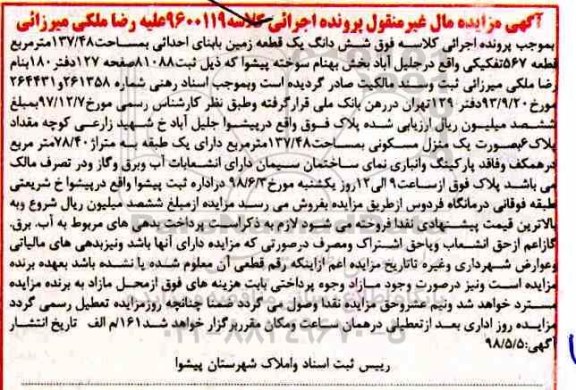 آگهی مزایده مال غیرمنقول پرونده اجرائی کلاسه ۹۶۰۰۱۱۹علیه رضا ملکی میرزائی
بموجب پرونده اجرائی کلاسه فوق شش دانگ یک قطعه زمین بابنای احداثی بمساحت۱۳۷/۴۸مترمربع
قطعه ۵۶۷تفکیکی واقع درجلیل آباد بخش بهنام سوخته پیشوا که ذیل ثبت۸۱۰۸۸صفحه ۱۲۷دفتر ۱۸۰بنام
رضا ملکی میرزائی ثبت وسند مالکیت صادر گردیده است وبموجب اسناد رهنی شماره ۲۶۱۳۵۸و۲۶۴۴۳۱
مورخ ۹۳/۹/۲۰دفتر ۱۲۹تهران دررهن بانک ملی قرارگرفته وطبق نظر کارشناس رسمی مورخ۹۷/۱۲/۷بمبلغ
ششصد میلیون ریال ارزیابی شده پلاک فوق واقع درپیشوا جلیل آباد خ شهید زارعی کوچه مقداد
پلاک۶بصورت یک منزل مسکونی بمساحت۱۳۷/۴۸مترمربع دارای یک طبقه به متراژ۷۸/۴۰متر مربع
درهمکف وفاقد پارکینگ وانباری نمای ساختمان سیمان دارای انشعابات آب وبرق وگاز ودر تصرف مالک
می باشد پلاک فوق ازساعت۹الی۱۲روز یکشنبه مورخ۹۸/۶/۳دراداره ثبت پیشوا واقع درپیشوا خ شریعتی
طبقه فوقانی درمانگاه فردوس ازطریق مزایده بفروش می رسد مزایده ازمبلغ ششصد میلیون ریال شروع وبه
بالاترین قیمت پیشنهادی نقدا فروخته می شود لازم به ذکراست پرداخت بدهی های مربوط به آب، برق،
گازاعم ازحق انشعاب ویاحق اشتراک ومصرف درصورتی که مزایده دارای آنها باشد ونیزبدهی های مالیاتی
وعوارض شهرداری وغیره تاتاریخ مزایده اعم ازاینکه رقم قطعی آن معلوم شده یا نشده باشد بعهده برنده
مزایده است ونیز درصورت وجود مازاد وجوه پرداختی بابت هزینه های فوق ازمحل مازاد به برنده مزایده
مسترد خواهد شد ونیم عشروحق مزایده نقدا وصول می گردد ضمنا چنانچه روزمزایده تعطیل رسمی گردد
مزایده روز اداری بعد ازتعطیلی درهمان ساعت ومکان مقرربرگزار خواهد شد۱۶۱/م الف تاریخ انتشار
آگهی:۹۸/۵/۵
رییس ثبت اسناد واملاک شهرستان پیشوا